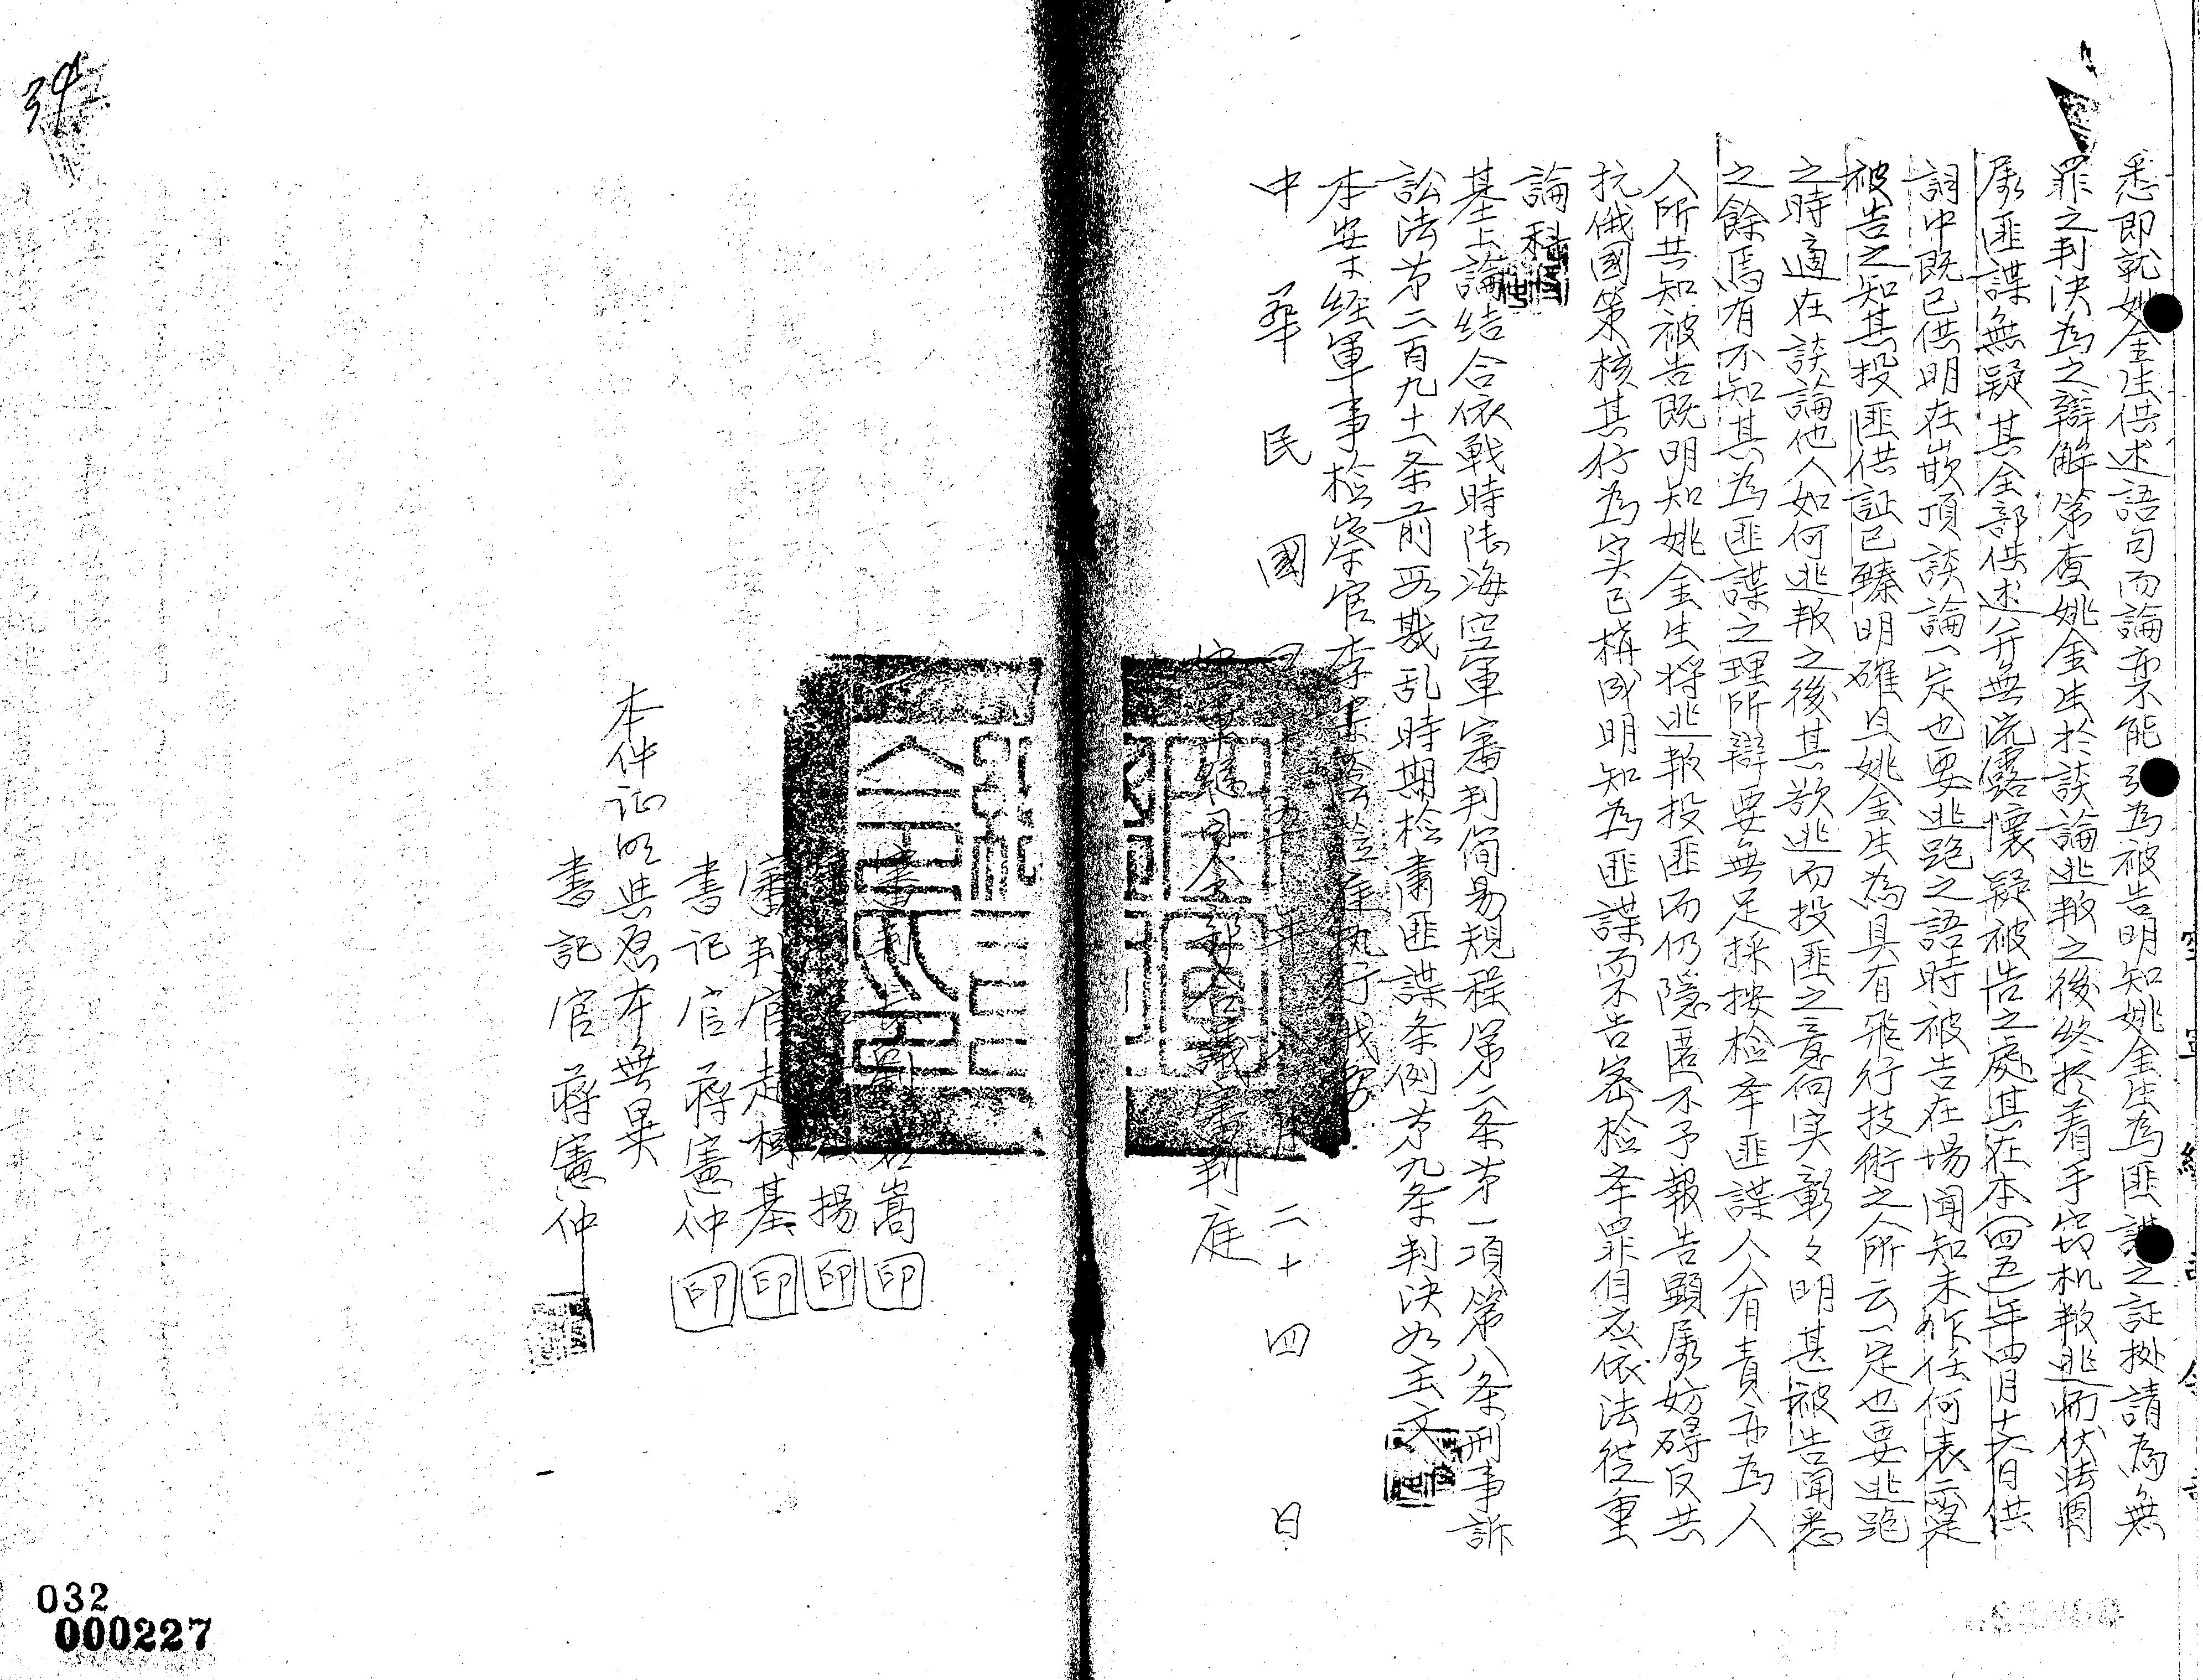 悉即就姚金生供述語句而論亦不能引為被告明知姚金生為匪諜之証拠請為無
罪之判决為之辯解第查姚金生於談論逃叛之後終於着手窃机叛逃而伏法固
屬匪諜無疑其全部供述亦無洗露懷疑被告之處其在本(四五)年四月十六日供
詞中既已供明在嵌頂談論一定也要逃跑之語時被告在場聞知未作任何表示是
被告之知其投匪供証已臻明確且姚金生為具有飛行技術之人所云一定也要逃跑
之時適在談論他人如何逃叛之後其欲逃而投匪之意向实彰々明甚被告聞悉
之餘焉有不知其為匪諜之理所辯要無足採按检举匪諜人人有責亦為人
人所共知被告既明知姚金生将逃叛投匪而仍隐匿不予報告顕屬妨碍反共
抗俄國策核其行为实已構成明知為匪諜而不告密检举罪自应依法從重
論科
基上論结合依戰時陸海空軍審判简易規程第二条第一項第八条刑事訴
訟法第二百九十一条前段戡乱時期检肃匪諜条例第九条判决如主文
本案经軍事检察官李 蒞庭执行职务
中華民國四十五年 月二十四日
空軍總司令部合議審判庭
審判 嵩 印
揚 印
審判官趙 基 印
書记官蔣憲仲 印
本件证明与原本無異
書記官蔣憲仲
34
032
000227